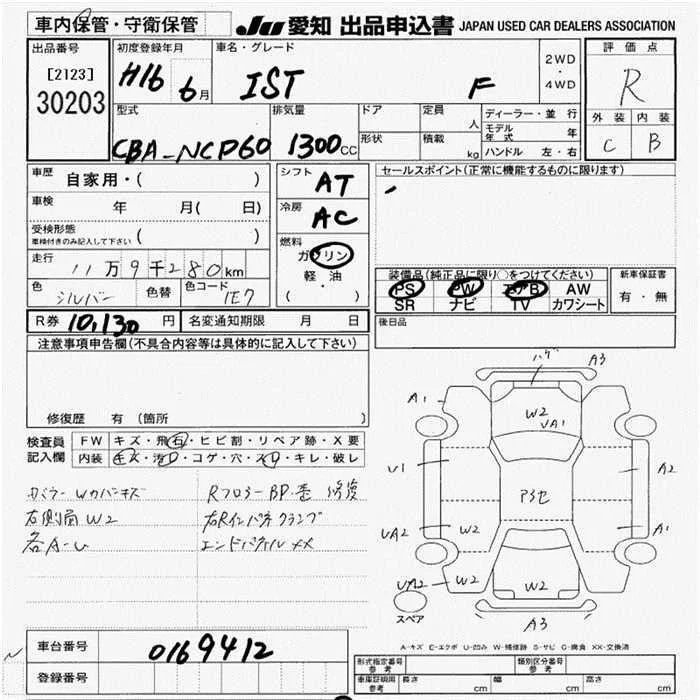 車内保管・守衛保管
JU 愛知 出品申込書 JAPAN USED CAR DEALERS ASSOCIATION
出品番号
[2123]
30203
初度登録年月
H16 6月
車名・グレード
IST F
2WD
・
4WD
評価点
R
外装 内装
C B
型式
CBA-NCP60
排気量
1300cc
ドア
形状
定員
人
積載
kg
ディーラー・並行
モデル年式 年
ハンドル 左・右
車歴
自家用・( )
車検
年 月( 日)
受検形態
車検付きのみ記入して下さい ( )
走行
11万9千280km
色
シルバー
色替
色コード
1E7
シフト
AT
冷房
AC
燃料
ガソリン
・
軽油
( )
セールスポイント(正常に機能するものに限ります)
装備品(純正品に限り○をつけてください)
PS PW エアB AW
SR ナビ TV カワシート
新車保証書
有・無
後日品
R券 10,130円
名変通知期限 月 日
注意事項申告欄(不具合内容等は具体的に記入して下さい)
修復歴 有(箇所 )
検査員記入欄
FW キズ・飛石・ヒビ割・リペア跡・X要
内装 キズ・汚レ・コゲ・穴・スレ・キレ・破レ
右側面W2
各A-U
Rフロアー BP・歪 修復
右Rインパネクランプ
エンドパネルXX
ハゲ
A3
A1
W2
UA1
U1
A2
Pヨセ
UA2
W2
A1
UA2
W2
W2
A3
スペア
A-キズ E-エクボ U-凹み W-補修跡 S-サビ C-腐食 XX-交換済
車台番号
0169412
登録番号
形式指定番号
参考
類別区分番号
参考
車庫証明用
参考
長さ cm
幅 cm
高さ cm